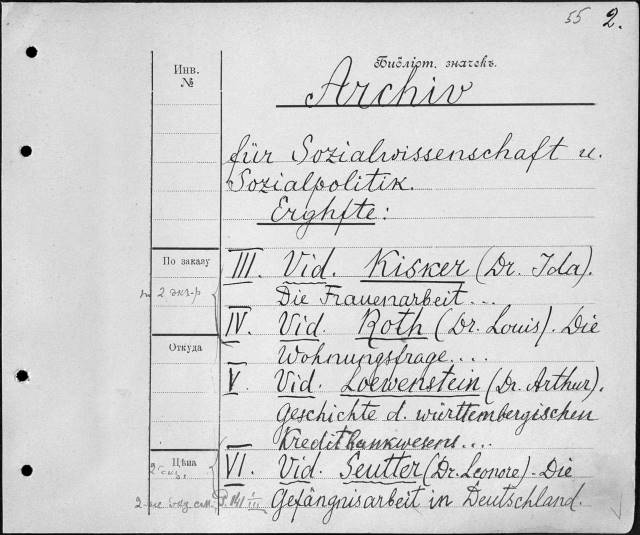 55 2.
Инв.
№
Библіот. значекъ.
Archiv
für Sozialwissenschaft u.
Sozialpolitik.
Erghfte:
По заказу
III. Vid. Kisker (Dr. Ida).
2 экз-р
Die Frauenarbeit...
IV. Vid. Roth (Dr. Louis). Die
Откуда
Wohnungsfrage....
V. Vid. Loewenstein (Dr. Arthur).
Geschichte d. württembergischen
Kreditbankwesens....
Цѣна
VI. Vid. Seutter (Dr. Leonore). Die
Gefängnisarbeit in Deutschland.